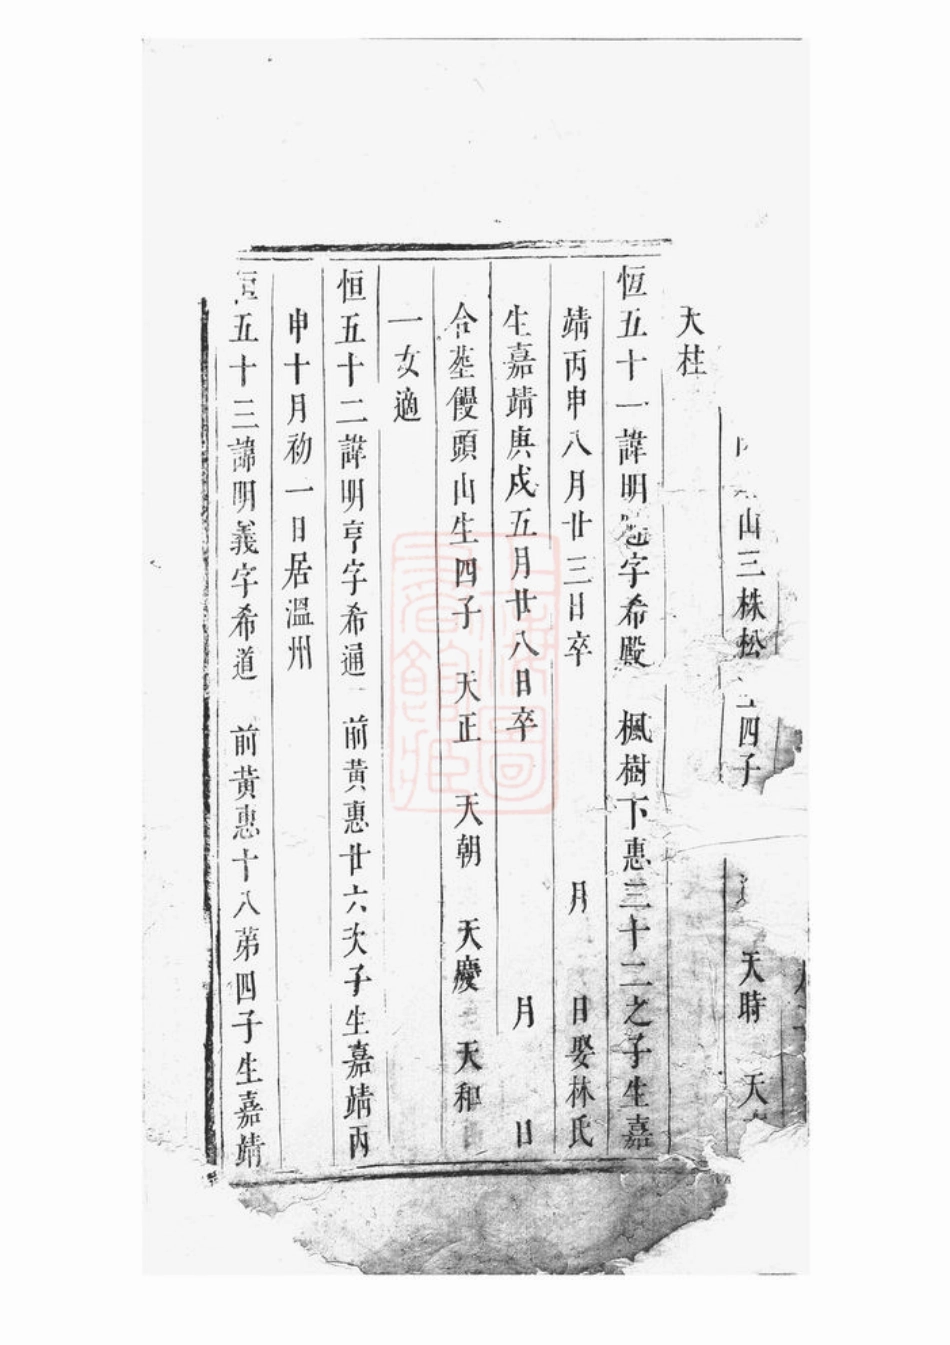 山三株松 四子 天時 天
天柱
恆五十一諱明 字希殿 楓樹下惠三十二之子生嘉
靖丙申八月廿三日卒 月 日娶林氏
生嘉靖庚戌五月廿八日卒 月 日
合塟饅頭山生四子 天正 天朝 天慶 天和
一女適
恒五十二諱明亨字希通 前黃惠廿六次子生嘉靖丙
申十月初一日居溫州
五十三諱明義字希道 前黃惠十八第四子生嘉靖